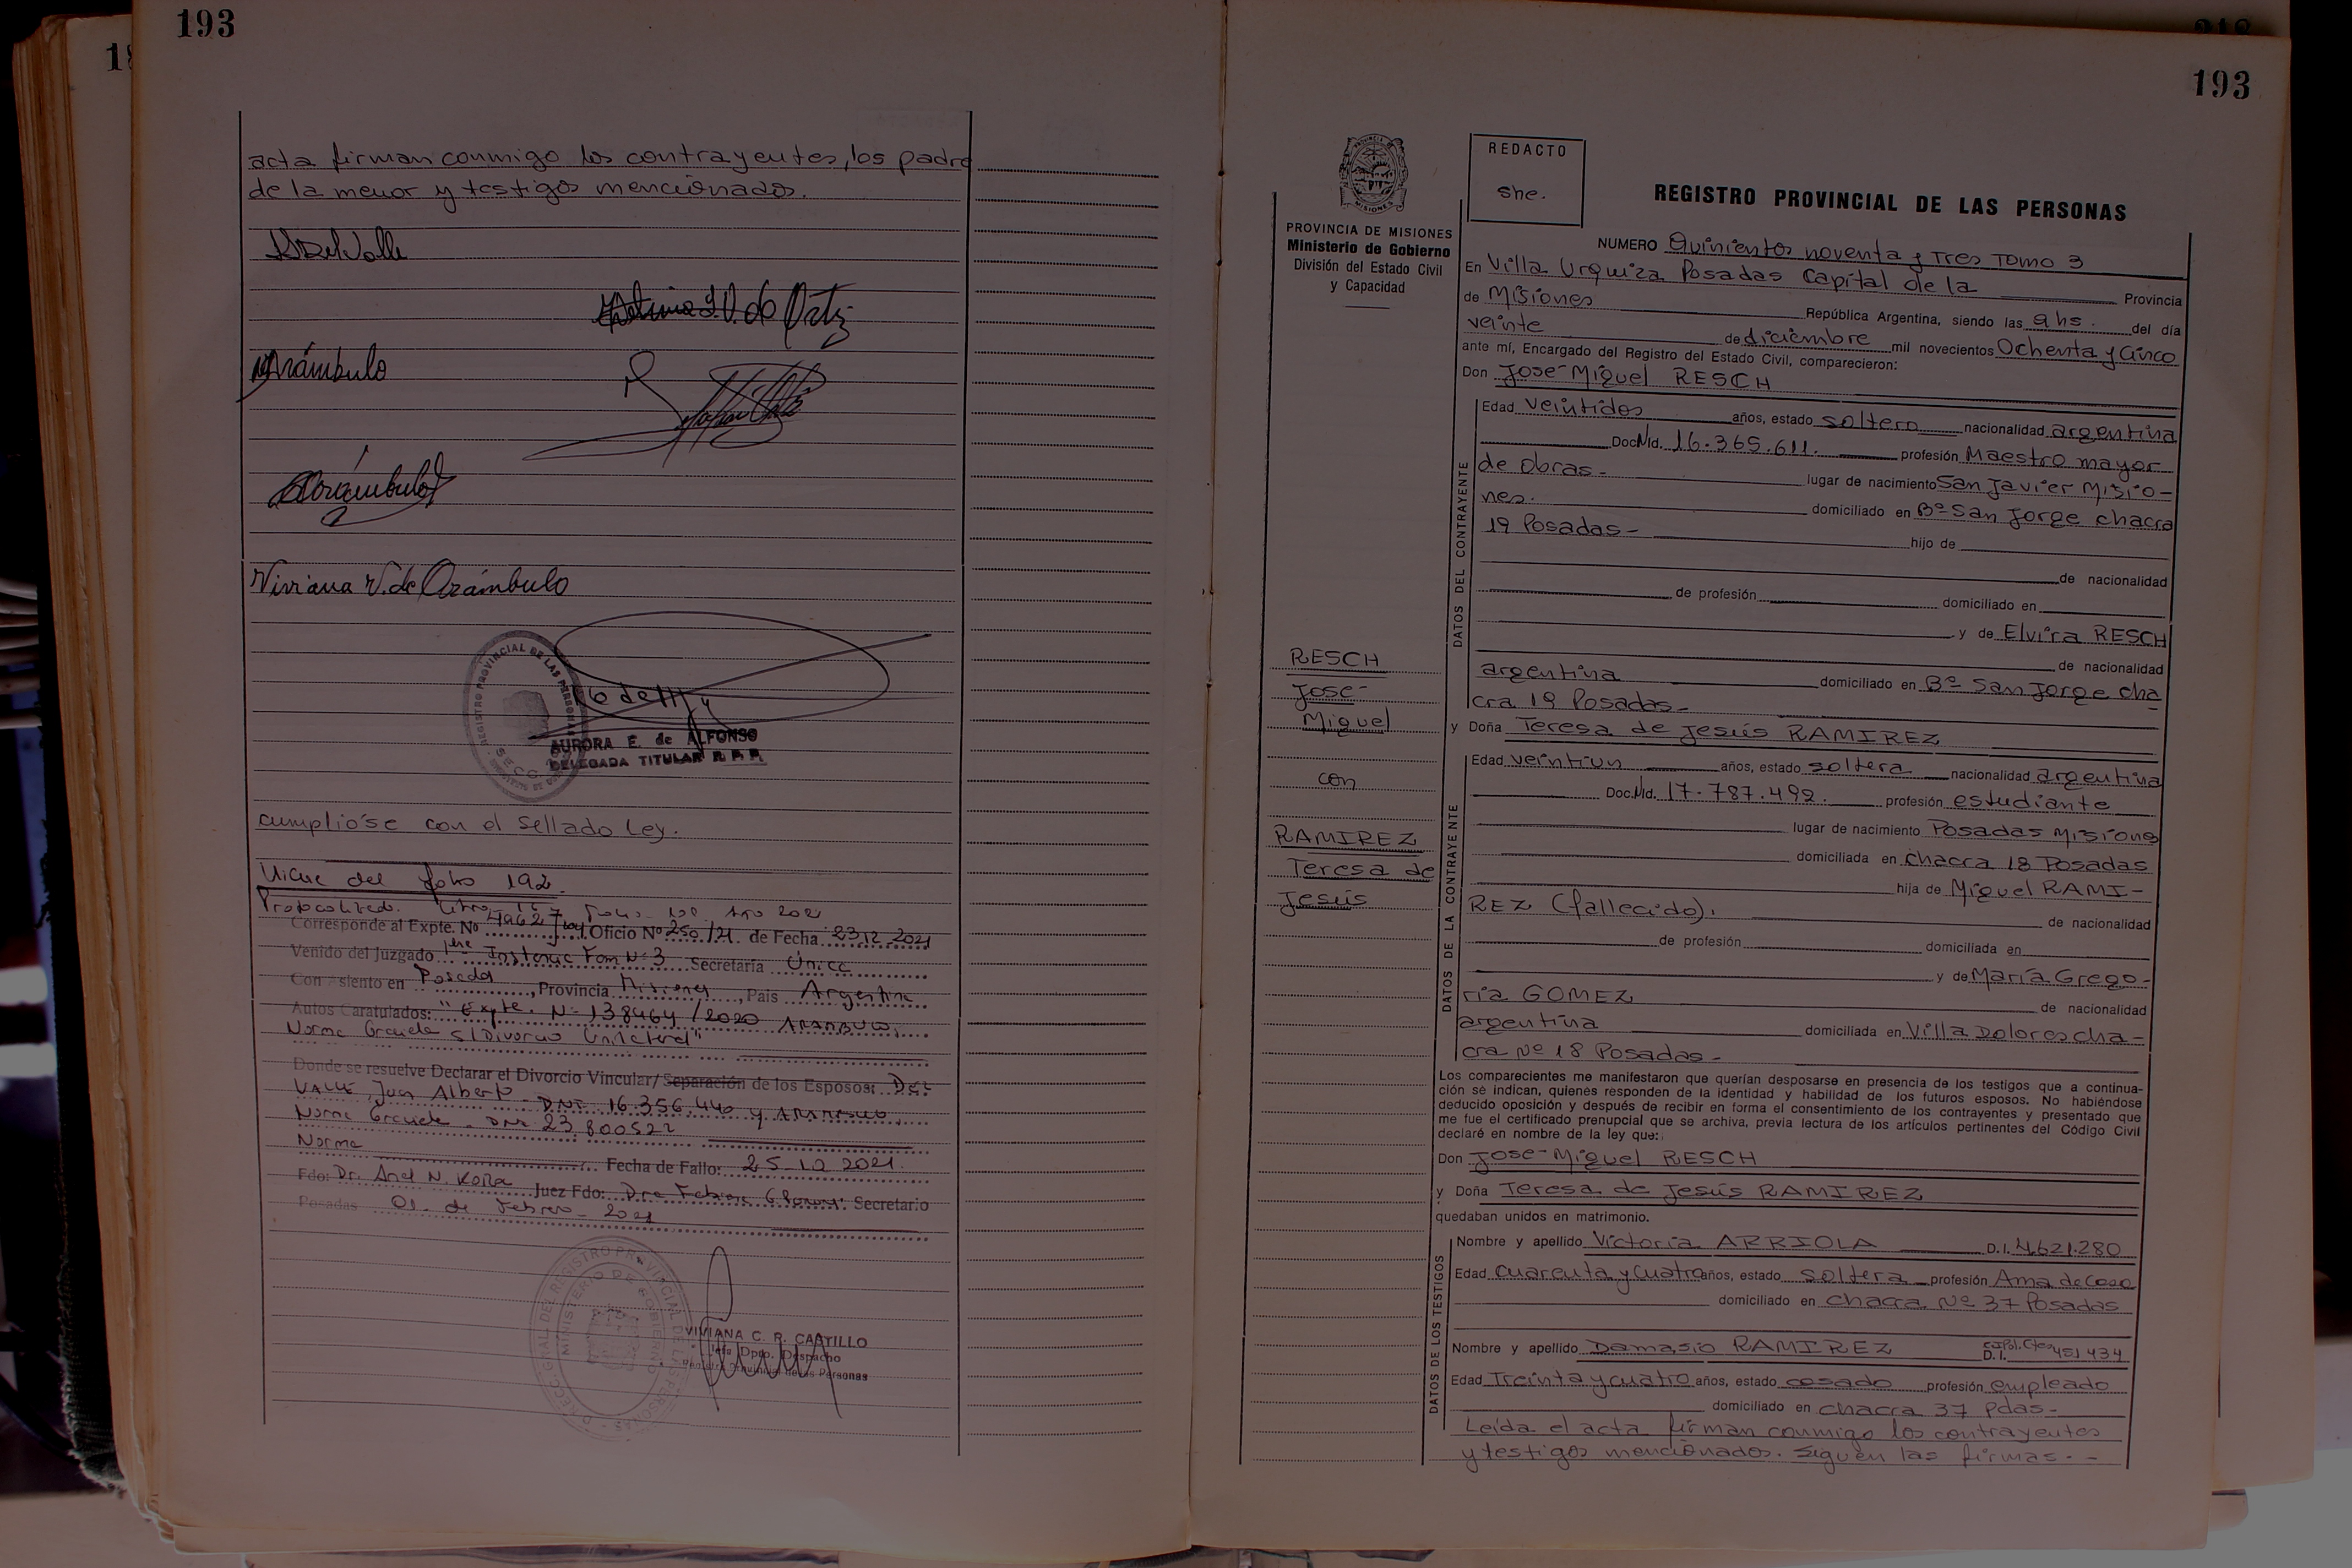 193
acta firman conmigo los contrayentes, los padre
de la menor y testigos mencionados.
Viviana V. de Arámbulo
REGISTRO PROVINCIAL DE LAS PERSONAS
AURORA E. de ALFONSO
DELEGADA TITULAR R. P. P.
cumplióse con el sellado Ley.
Viene del folio 192.
Protocolizado. Libro Folio Año 2021
Corresponde al Expte. No Oficio Nº 250/21. de Fecha 23.12.2021
Venido del Juzgado 1ra Instancia Fam Nº 3 Secretaria Única
Con Asiento en Posadas, Provincia Misiones, Pais Argentina
Autos Caratulados: "Expte. Nº 138464/2020 ARAMBULO,
Norma Graciela s/Divorcio Unilateral"
Donde se resuelve Declarar el Divorcio Vincular/Separación de los Esposos: DEL
VALLE, Juan Alberto - DNI 16.356.440 y ARAMBULO,
Norma Graciela - DNI 23.800522
Norma Fecha de Fallo: 25-10 2021.
Fdo: Dr. Juez Fdo: Dra Secretario
Posadas 01 de Febrero - 2021
MINISTERIO DE GOBIERNO
VIVIANA C. R. CASTILLO
Jefa Dpto. Despacho
193
REDACTO
she.
REGISTRO PROVINCIAL DE LAS PERSONAS
PROVINCIA DE MISIONES
Ministerio de Gobierno
División del Estado Civil
y Capacidad
NUMERO Quinientos noventa y Tres Tomo 3
En Villa Urquiza Posadas Capital de la Provincia
de Misiones República Argentina, siendo las 9 hs. del día
veinte de diciembre mil novecientos Ochenta y Cinco
ante mí, Encargado del Registro del Estado Civil, comparecieron:
Don José Miguel RESCH
DATOS DEL CONTRAYENTE
Edad veintidos años, estado soltero nacionalidad argentina
Doc. Nld. 16.365.611. profesión Maestro mayor
de obras - lugar de nacimiento San Javier Misio-
nes. domiciliado en Bº San Jorge chacra
19 Posadas - hijo de
de nacionalidad
de profesión domiciliado en
y de Elvira RESCH
de nacionalidad
argentina domiciliado en Bº San Jorge cha
cra 19 Posadas -
y Doña Teresa de Jesús RAMIREZ
RESCH
José
Miguel
con
RAMIREZ
Teresa de
Jesús
DATOS DE LA CONTRAYENTE
Edad veintiun años, estado soltera nacionalidad argentina
Doc. Nld. 17.787.492. profesión estudiante
lugar de nacimiento Posadas Misiones
domiciliada en chacra 18 Posadas
hija de Miguel RAMI-
REZ (fallecido). de nacionalidad
de profesión domiciliada en
y de María Grego-
ria GOMEZ de nacionalidad
argentina domiciliada en Villa Dolores cha-
cra Nº 18 Posadas -
Los comparecientes me manifestaron que querían desposarse en presencia de los testigos que a continua-
ción se indican, quienes responden de la identidad y habilidad de los futuros esposos. No habiéndose
deducido oposición y después de recibir en forma el consentimiento de los contrayentes y presentado que
me fue el certificado prenupcial que se archiva, previa lectura de los artículos pertinentes del Código Civil
declaré en nombre de la ley que:
Don José Miguel RESCH
y Doña Teresa de Jesús RAMIREZ
quedaban unidos en matrimonio.
DATOS DE LOS TESTIGOS
Nombre y apellido Victoria ARRIOLA D.I. 4.621.280
Edad cuarenta y cuatro años, estado soltera profesión Ama de Casa
domiciliado en chacra Nº 37 Posadas
Nombre y apellido Damasio RAMIREZ D.I. 451434
Edad Treinta y cuatro años, estado casado profesión empleado
domiciliado en chacra 37 Pdas -
Leída el acta firman conmigo los contrayentes
y testigos mencionados. Siguen las firmas. -